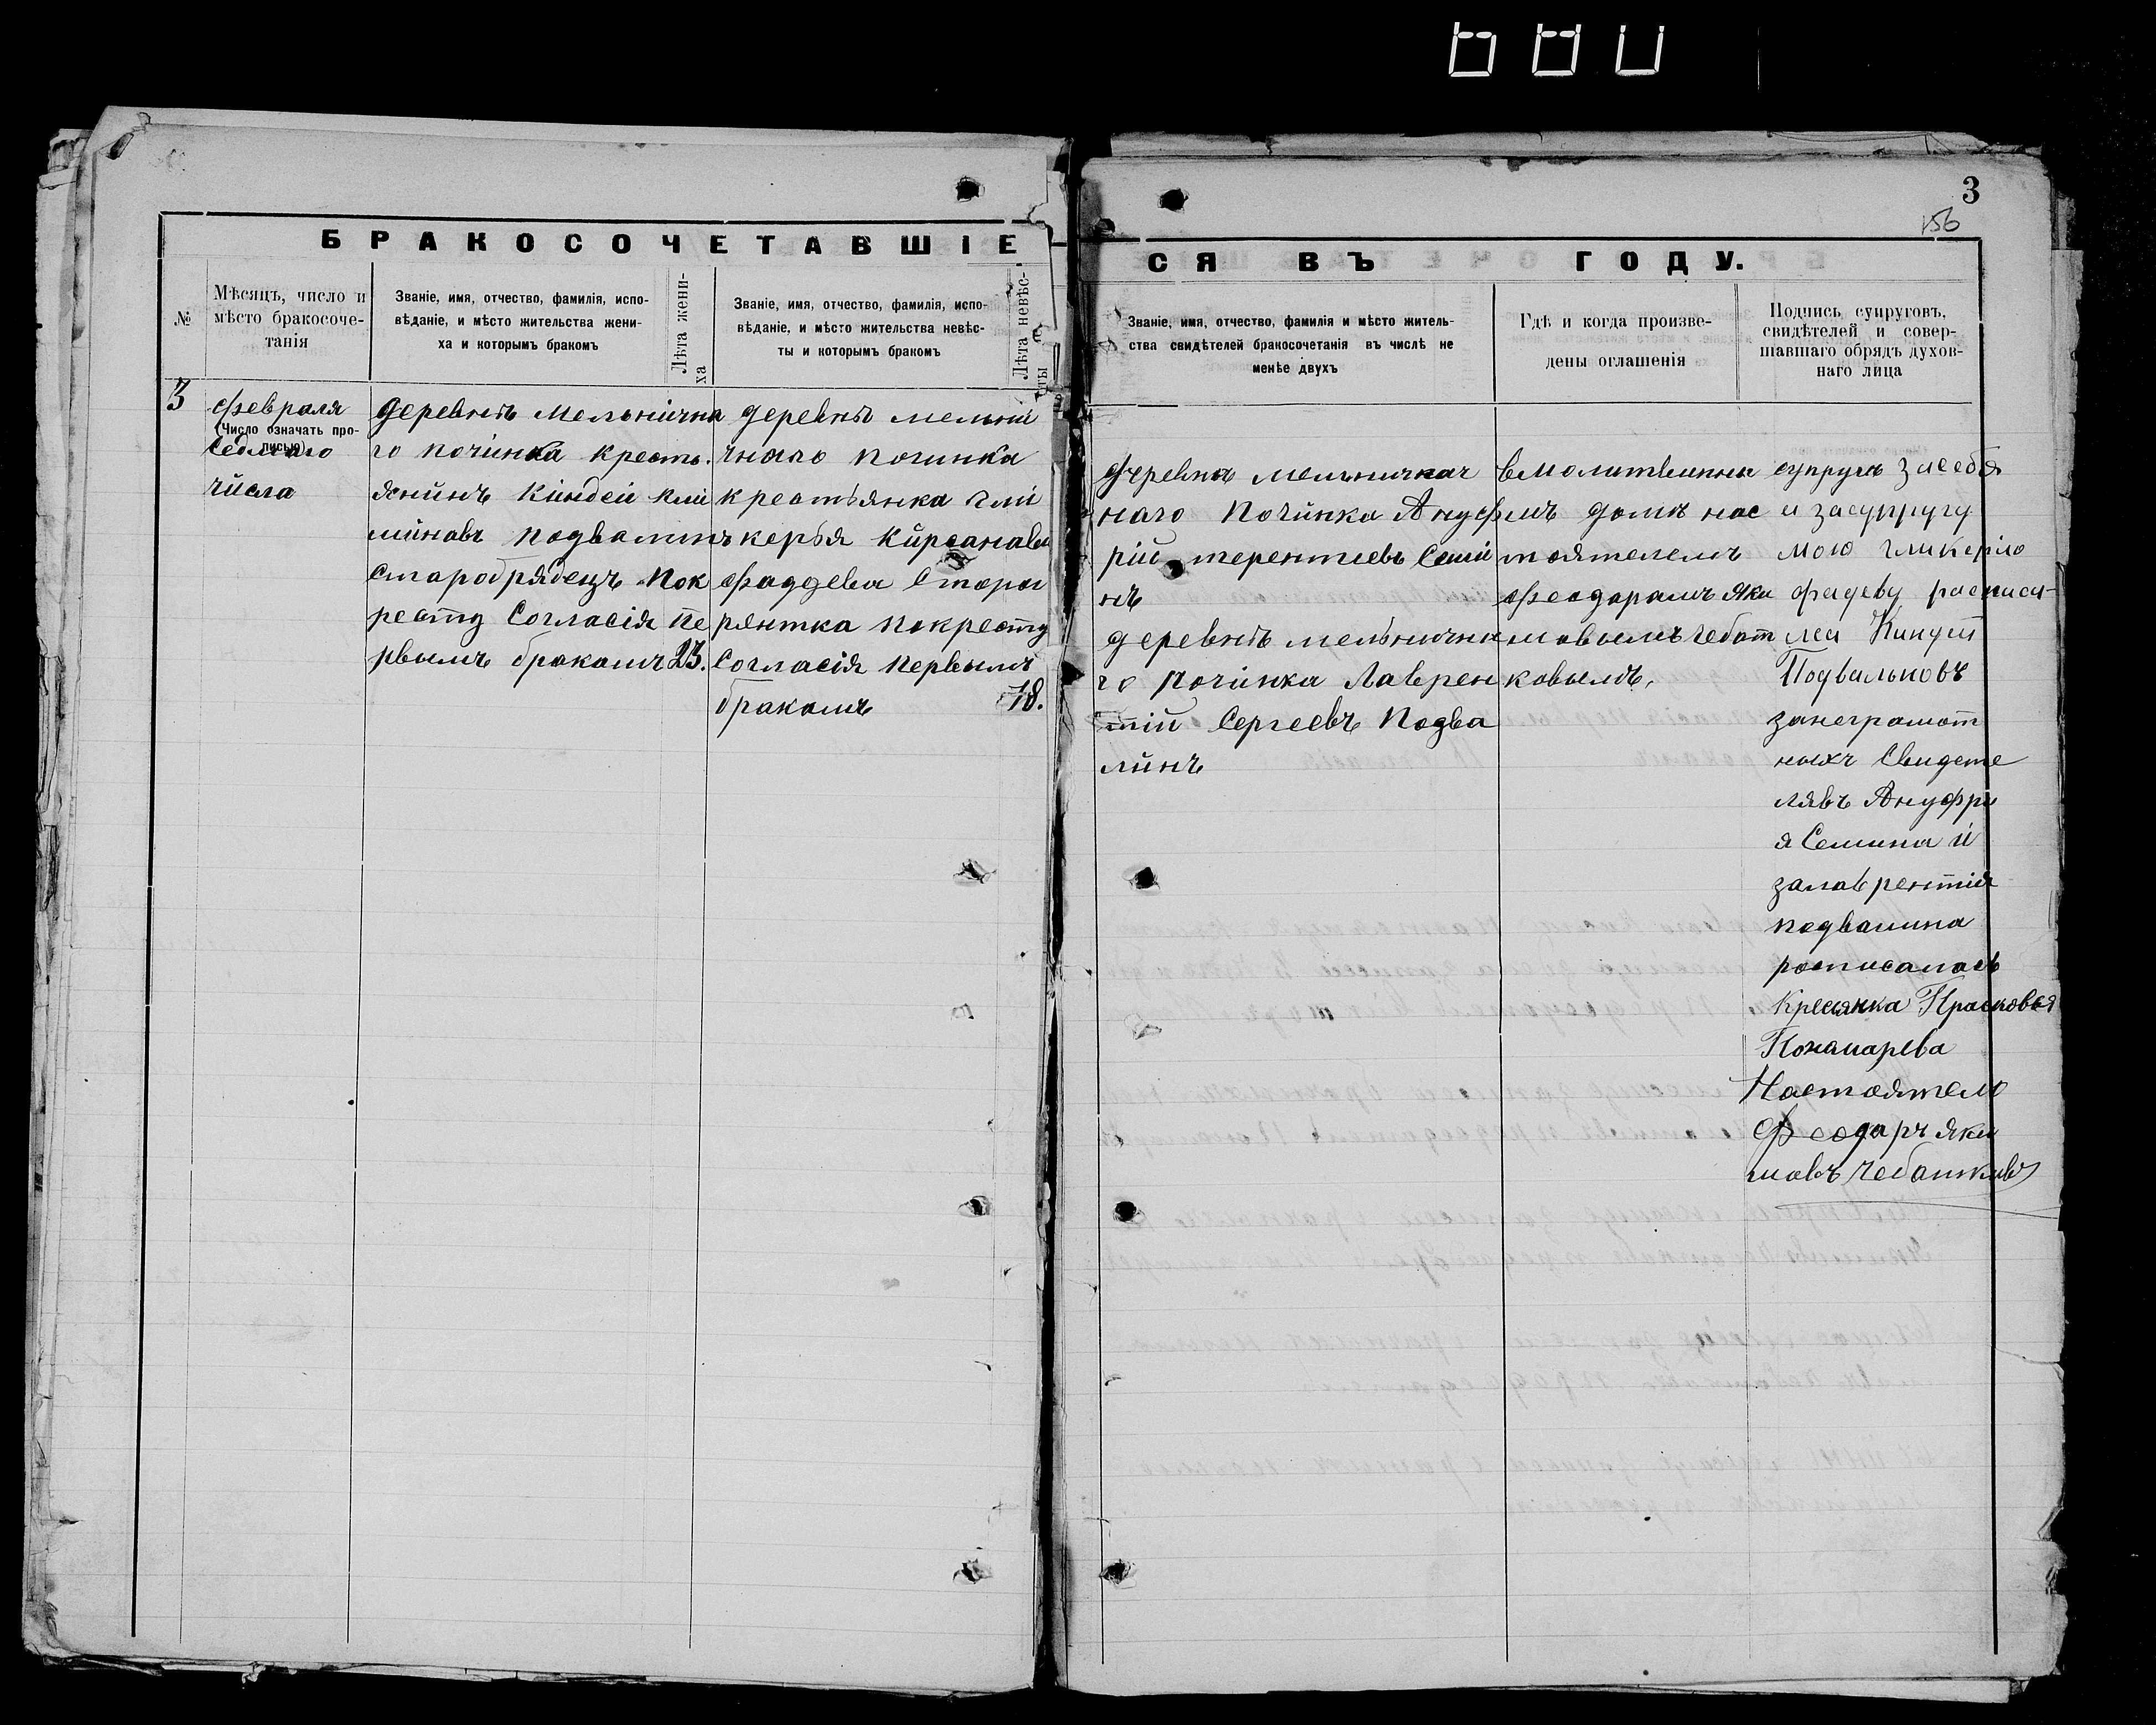 3
156
БРАКОСОЧЕТАВШІЕ
СЯ ВЪ ГОДУ.
№
Мѣсяцъ, число и
мѣсто бракосоче-
танія
Званіе, имя, отчество, фамилія, испо-
вѣданіе, и мѣсто жительства жени-
ха и которымъ бракомъ
Лѣта жени-
ха
Званіе, имя, отчество, фамилія, испо-
вѣданіе, и мѣсто жительства невѣс-
ты и которымъ бракомъ
Лѣта невѣс-
ты
Званіе, имя, отчество, фамилія и мѣсто житель-
ства свидѣтелей бракосочетанія въ числѣ не
менѣе двухъ
Гдѣ и когда произве-
дены оглашенія
Подпись супруговъ,
свидѣтелей и совер-
шавшаго обрядъ духов-
наго лица
3
февраля
(Число означать про-
писью)
седмаго
числа
деревнѣ Мельнична
го починка кресть.
янинъ Киндей Кли
миновъ подвалинъ
старобрядецъ пок
ресту Согласія пе
рвымъ бракомъ 23.
деревнѣ мельни
чнаго починка
крестьянка гли
керья Кирсанава
фаддева Старог
рянтка покресту
Согласія первымъ
бракомъ 18.
деревнѣ мельничнаг
наго починка Ануф
рій терентиевъ Семи
нъ
деревнѣ мельнична
го починка Лаврен
тій Сергеевъ Подва
линъ
вмолитвинны
мъ домѣ нас
тоятелемъ
феодорамъ Яки
мовымъ Чебот
ковымъ.
супругъ засебя
и засупругу
мою гликерію
фадеву расписа-
лся Киндей
Подвальновъ
занеграмот
ныхъ Свидете
лявъ Ануфри
я Семина и
залаврентія
подвалина
росписалась
Кресянка Прасковья
Понамарева
Настоятель
Феодаръ яки
мовъ Чебатковъ